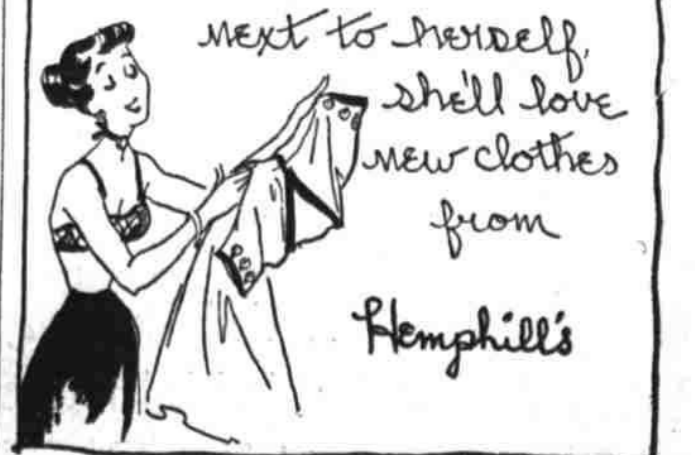 next to herself,
she'll love
new clothes
from
Hemphill's